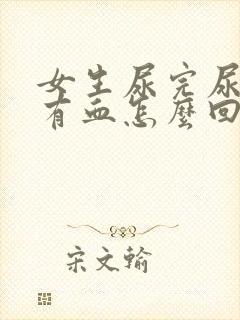 女生尿完尿
有血怎麼回
宋文輸